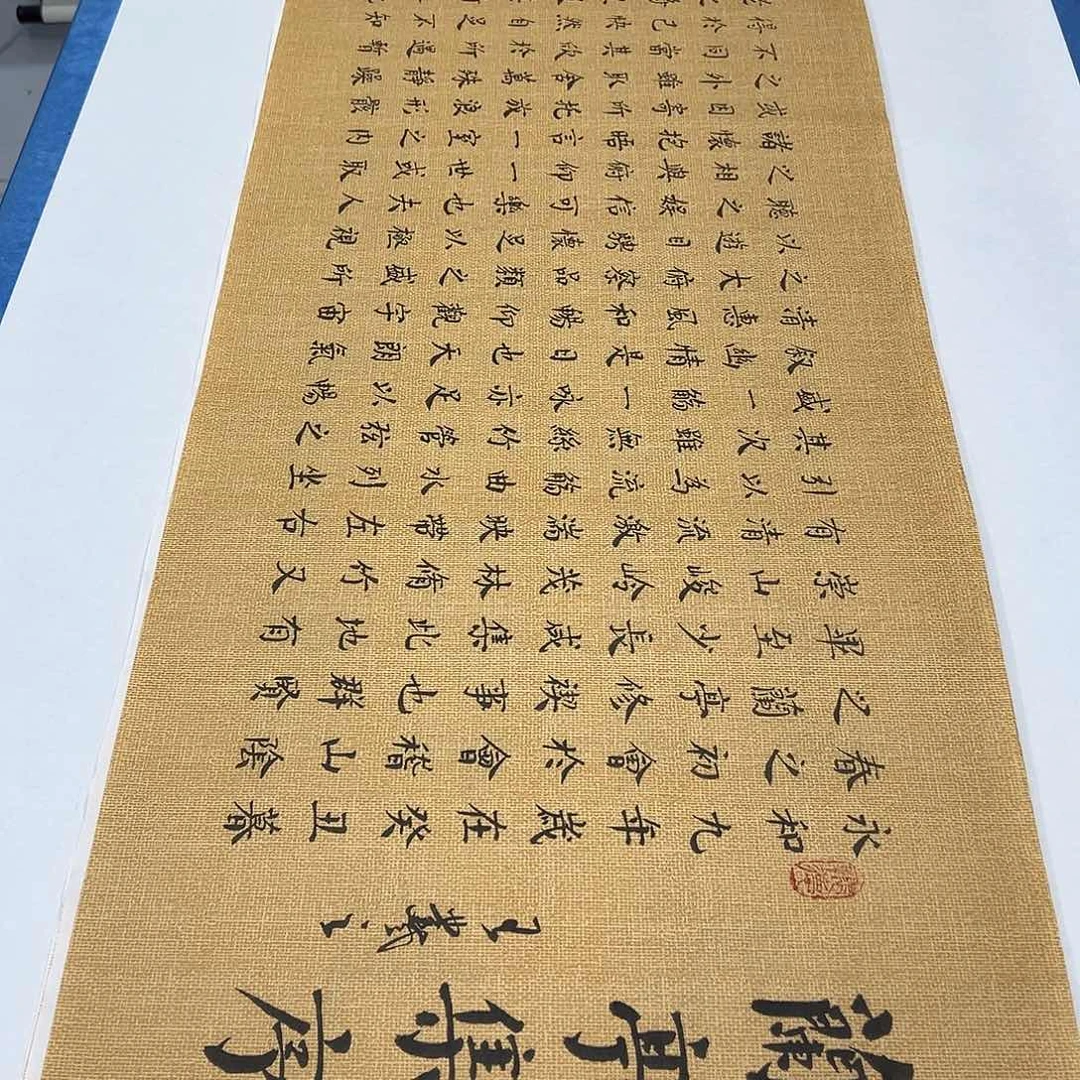 蘭亭集序
王羲之
永和九年歲在癸丑暮
春之初會於會稽山陰
之蘭亭修禊事也群賢
畢至少長咸集此地有
崇山峻岭茂林脩竹又
有清流激湍映帶左右
引以為流觴曲水列坐
其次雖無絲竹管弦之
盛一觴一咏亦足以暢
叙幽情是日也天朗氣
清惠風和暢仰觀宇宙
之大俯察品類之盛所
以遊目騁懷足以極視
聽之娛信可樂也夫人
之相與俯仰一世或取
諸懷抱晤言一室之內
或因寄所托放浪形骸
之外雖取舍萬殊靜躁
不同當其欣於所遇暫
得於己快然自足不知